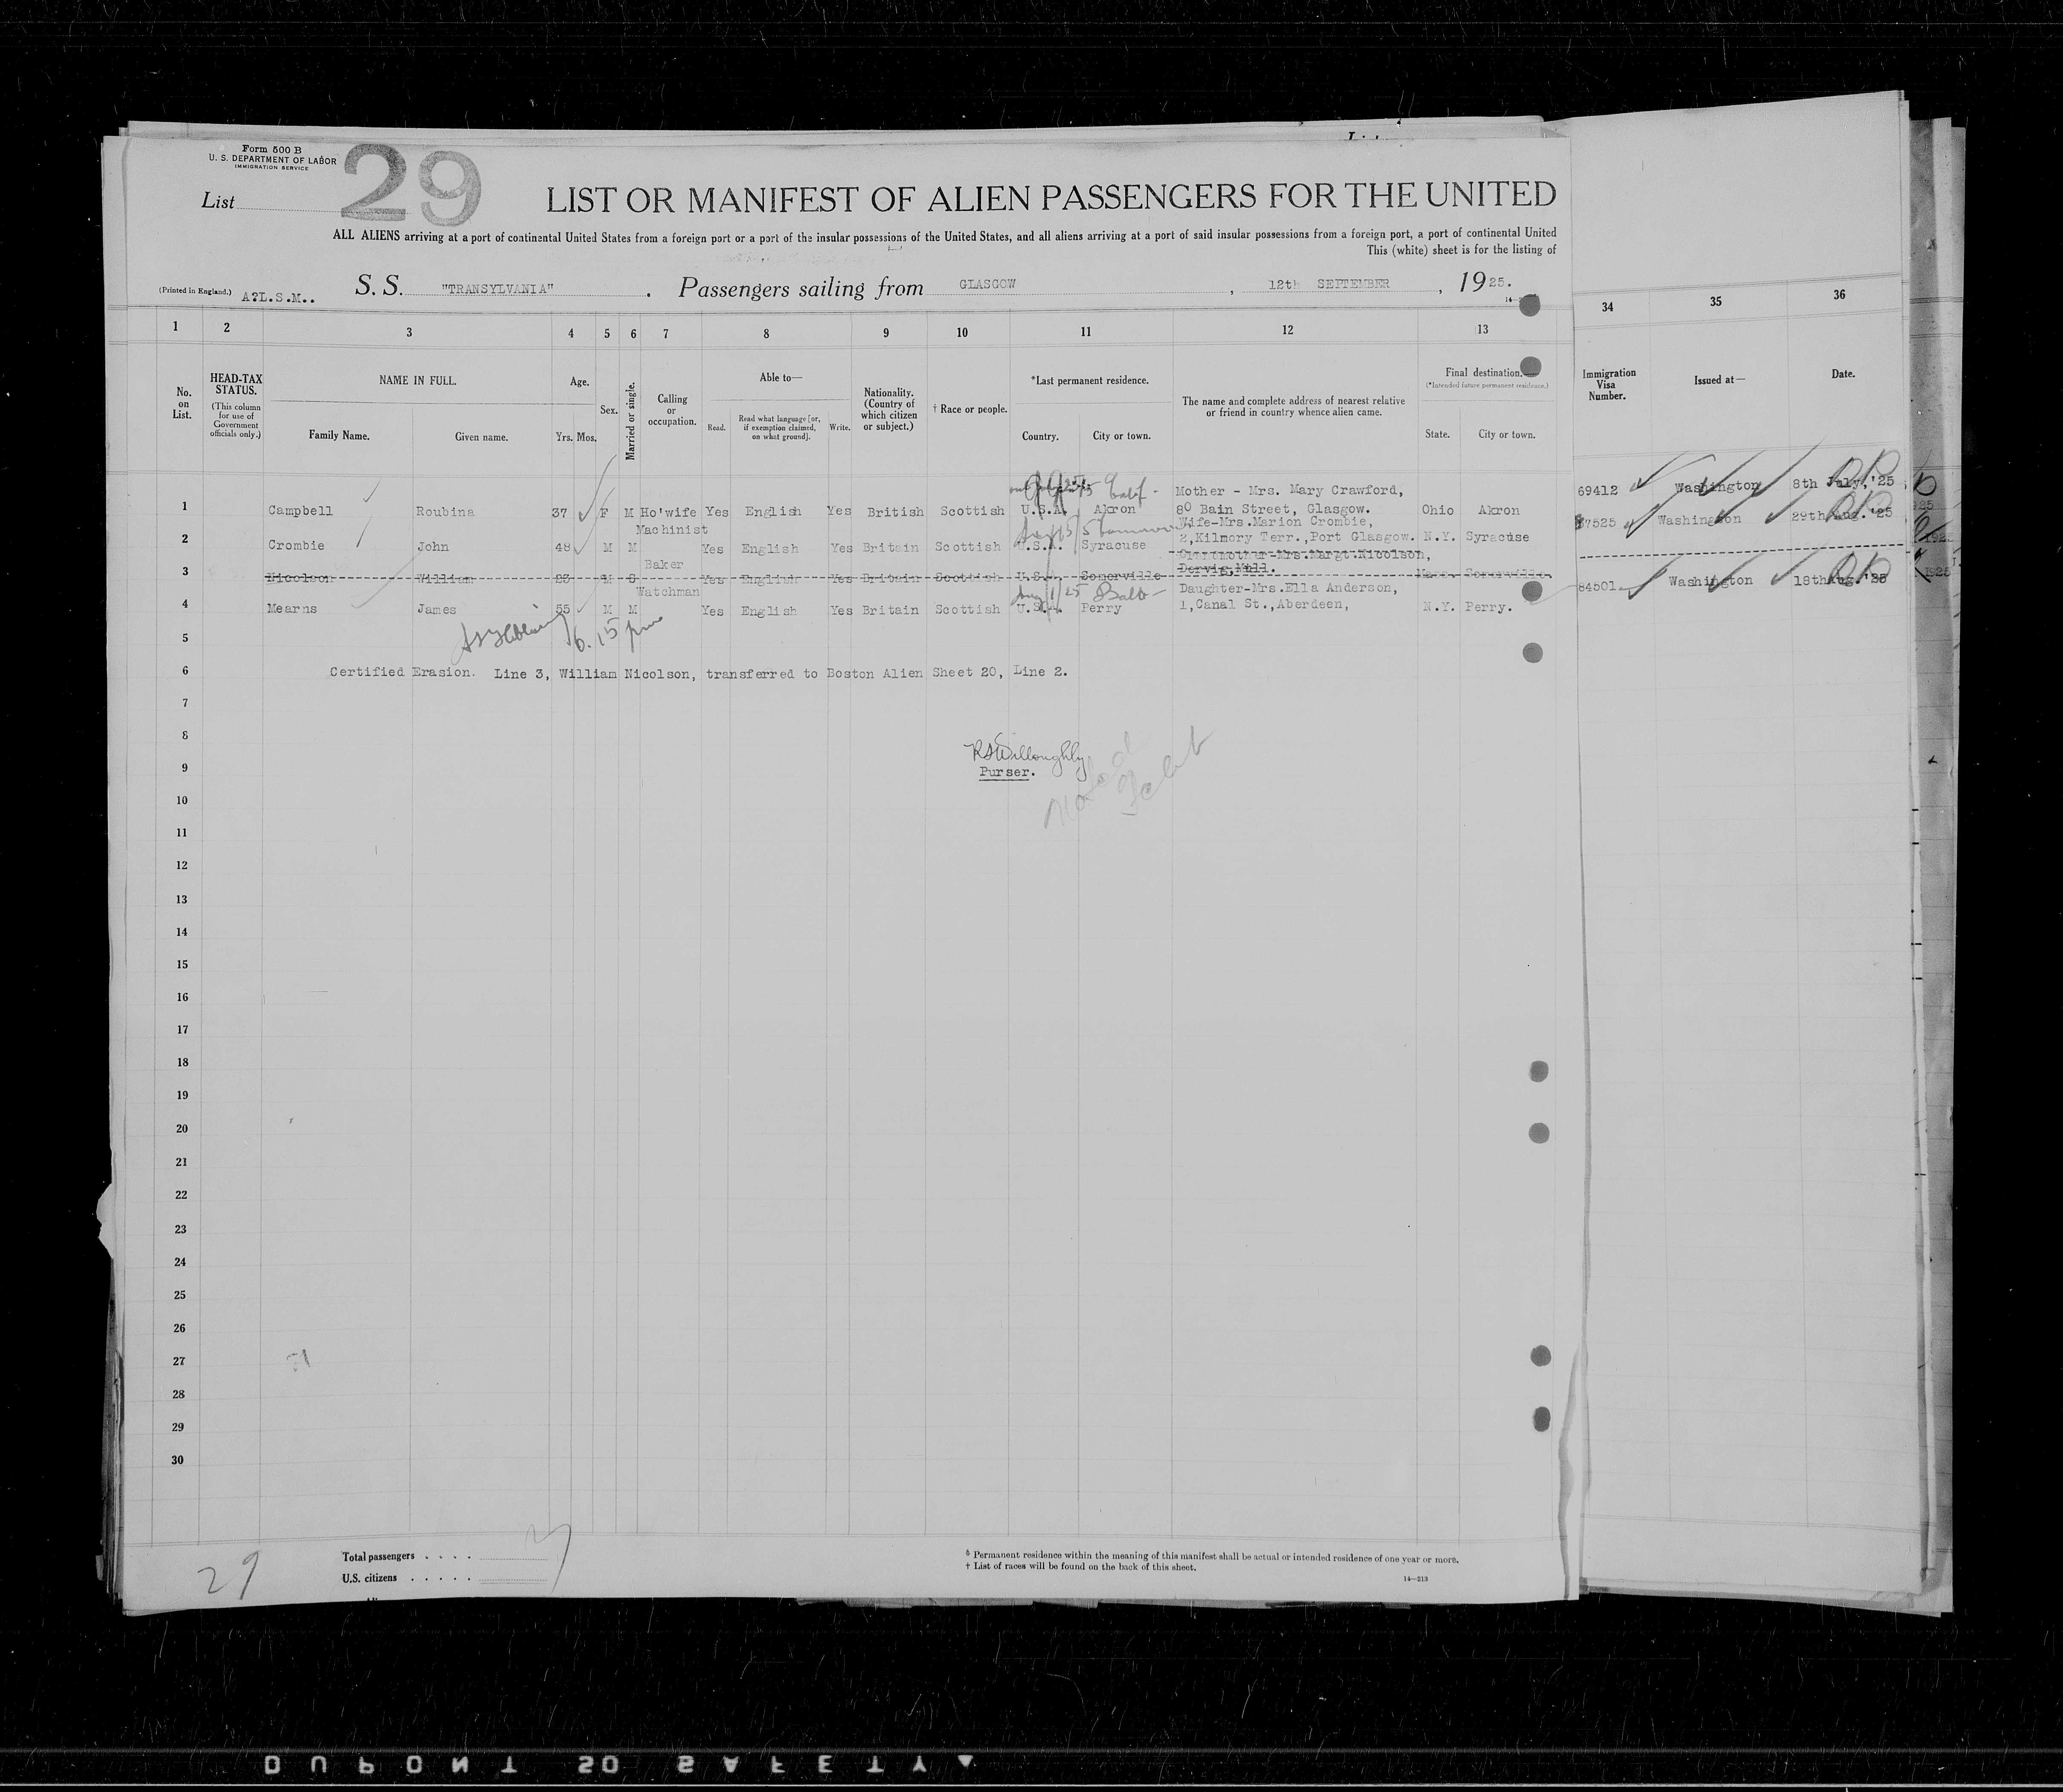 Form 500 B
U. S. DEPARTMENT OF LABOR
IMMIGRATION SERVICE
List 29
LIST OR MANIFEST OF ALIEN PASSENGERS FOR THE UNITED
ALL ALIENS arriving at a port of continental United States from a foreign port or a port of the insular possessions of the United States, and all aliens arriving at a port of said insular possessions from a foreign port, a port of continental United
This (white) sheet is for the listing of
(Printed in England.) A?L.S.M.. S. S. "TRANSYLVANIA" . Passengers sailing from GLASGOW , 12th SEPTEMBER , 1925.
1 2 3 4 5 6 7 8 9 10 11 12 13 34 35 36
No. on List.
HEAD-TAX STATUS.
(This column for use of Government officials only.)
NAME IN FULL.
Family Name. Given name.
Age.
Yrs. Mos.
Sex.
Married or single.
Calling or occupation.
Able to—
Read. Read what language [or, if exemption claimed, on what ground]. Write.
Nationality. (Country of which citizen or subject.)
† Race or people.
*Last permanent residence.
Country. City or town.
The name and complete address of nearest relative or friend in country whence alien came.
Final destination.
(*Intended future permanent residence.)
State. City or town.
Immigration Visa Number.
Issued at—
Date.
Mother - Mrs. Mary Crawford,
1 Campbell Roubina 37 F M Ho'wife Yes English Yes British Scottish U.S.A. Akron 80 Bain Street, Glasgow. Ohio Akron 69412 Washington 8th July,'25
Machinist Wife-Mrs.Marion Crombie,
2 Crombie John 48 M M Yes English Yes Britain Scottish U.S.A. Syracuse 2,Kilmory Terr.,Port Glasgow. N.Y. Syracuse 87525 Washington 29th Aug.'25
Baker
3 Nicolson William M S Yes English Yes Britain Scottish U.S.A. Somerville Dervig,Mull. Mass. Somerville.
Watchman Aug 1/25 Balto- Daughter-Mrs.Ella Anderson,
4 Mearns James 55 M M Yes English Yes Britain Scottish U.S.A. Perry 1,Canal St.,Aberdeen, N.Y. Perry. 84501 Washington 18th Aug.'25
5
6.15 pm
6 Certified Erasion. Line 3, William Nicolson, transferred to Boston Alien Sheet 20, Line 2.
7
8
RSWilloughby
9 Purser.
10
11
12
13
14
15
16
17
18
19
20
21
22
23
24
25
26
27
28
29
30
29
Total passengers . . . .
U.S. citizens . . . . .
* Permanent residence within the meaning of this manifest shall be actual or intended residence of one year or more.
† List of races will be found on the back of this sheet.
14—213
DUPONT 50 SAFETY